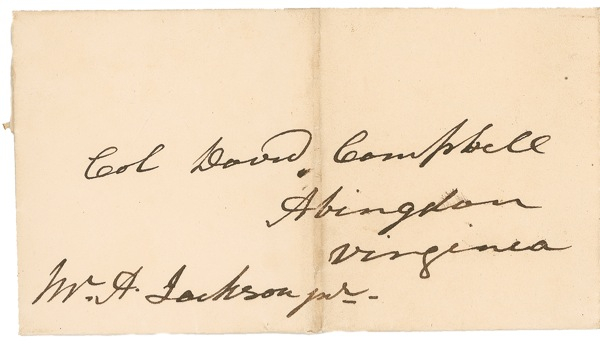 Col David Campbell
Abingdon
Virginia
Mr. A. Jackson jr.